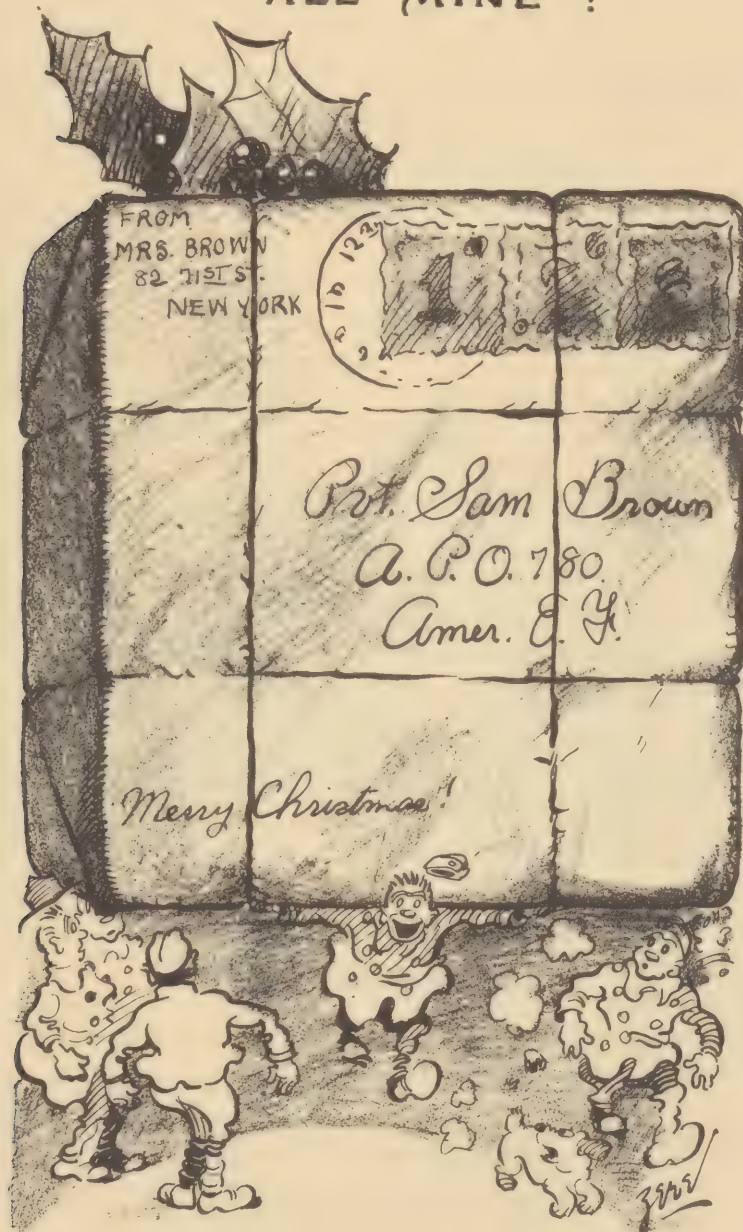 ALL MINE !
FROM
MRS. BROWN
82 71ST ST.
NEW YORK
1 2
Pvt. Sam Brown
A. P. O. 780
Amer. E. F.
Merry Christmas!